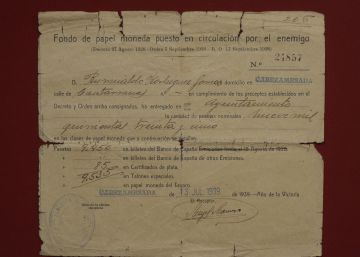 206
Fondo de papel moneda puesto en circulación por el enemigo
(Decreto 27 Agosto 1938 - Orden 5 Septiembre 1938 - B. O. 12 Septiembre 1938)
N.º 24857
D. domicilio en CABEZAMESADA
calle de en cumplimiento de los preceptos establecidos en el
Decreto y Orden arriba consignados, ha entregado en Ayuntamiento
la cantidad de pesetas nominales nueve mil
quinientas treinta y cinco
en las clases de papel moneda que a continuación se detallan:
Pesetas 9.450 en billetes del Banco de España
en billetes del Banco de España de otras Emisiones.
85 en Certificados de plata.
9.535 en Talones especiales.
en papel moneda del Tesoro.
CABEZAMESADA 13 JUL 1939 de 1939.-Año de la Victoria
El Receptor,